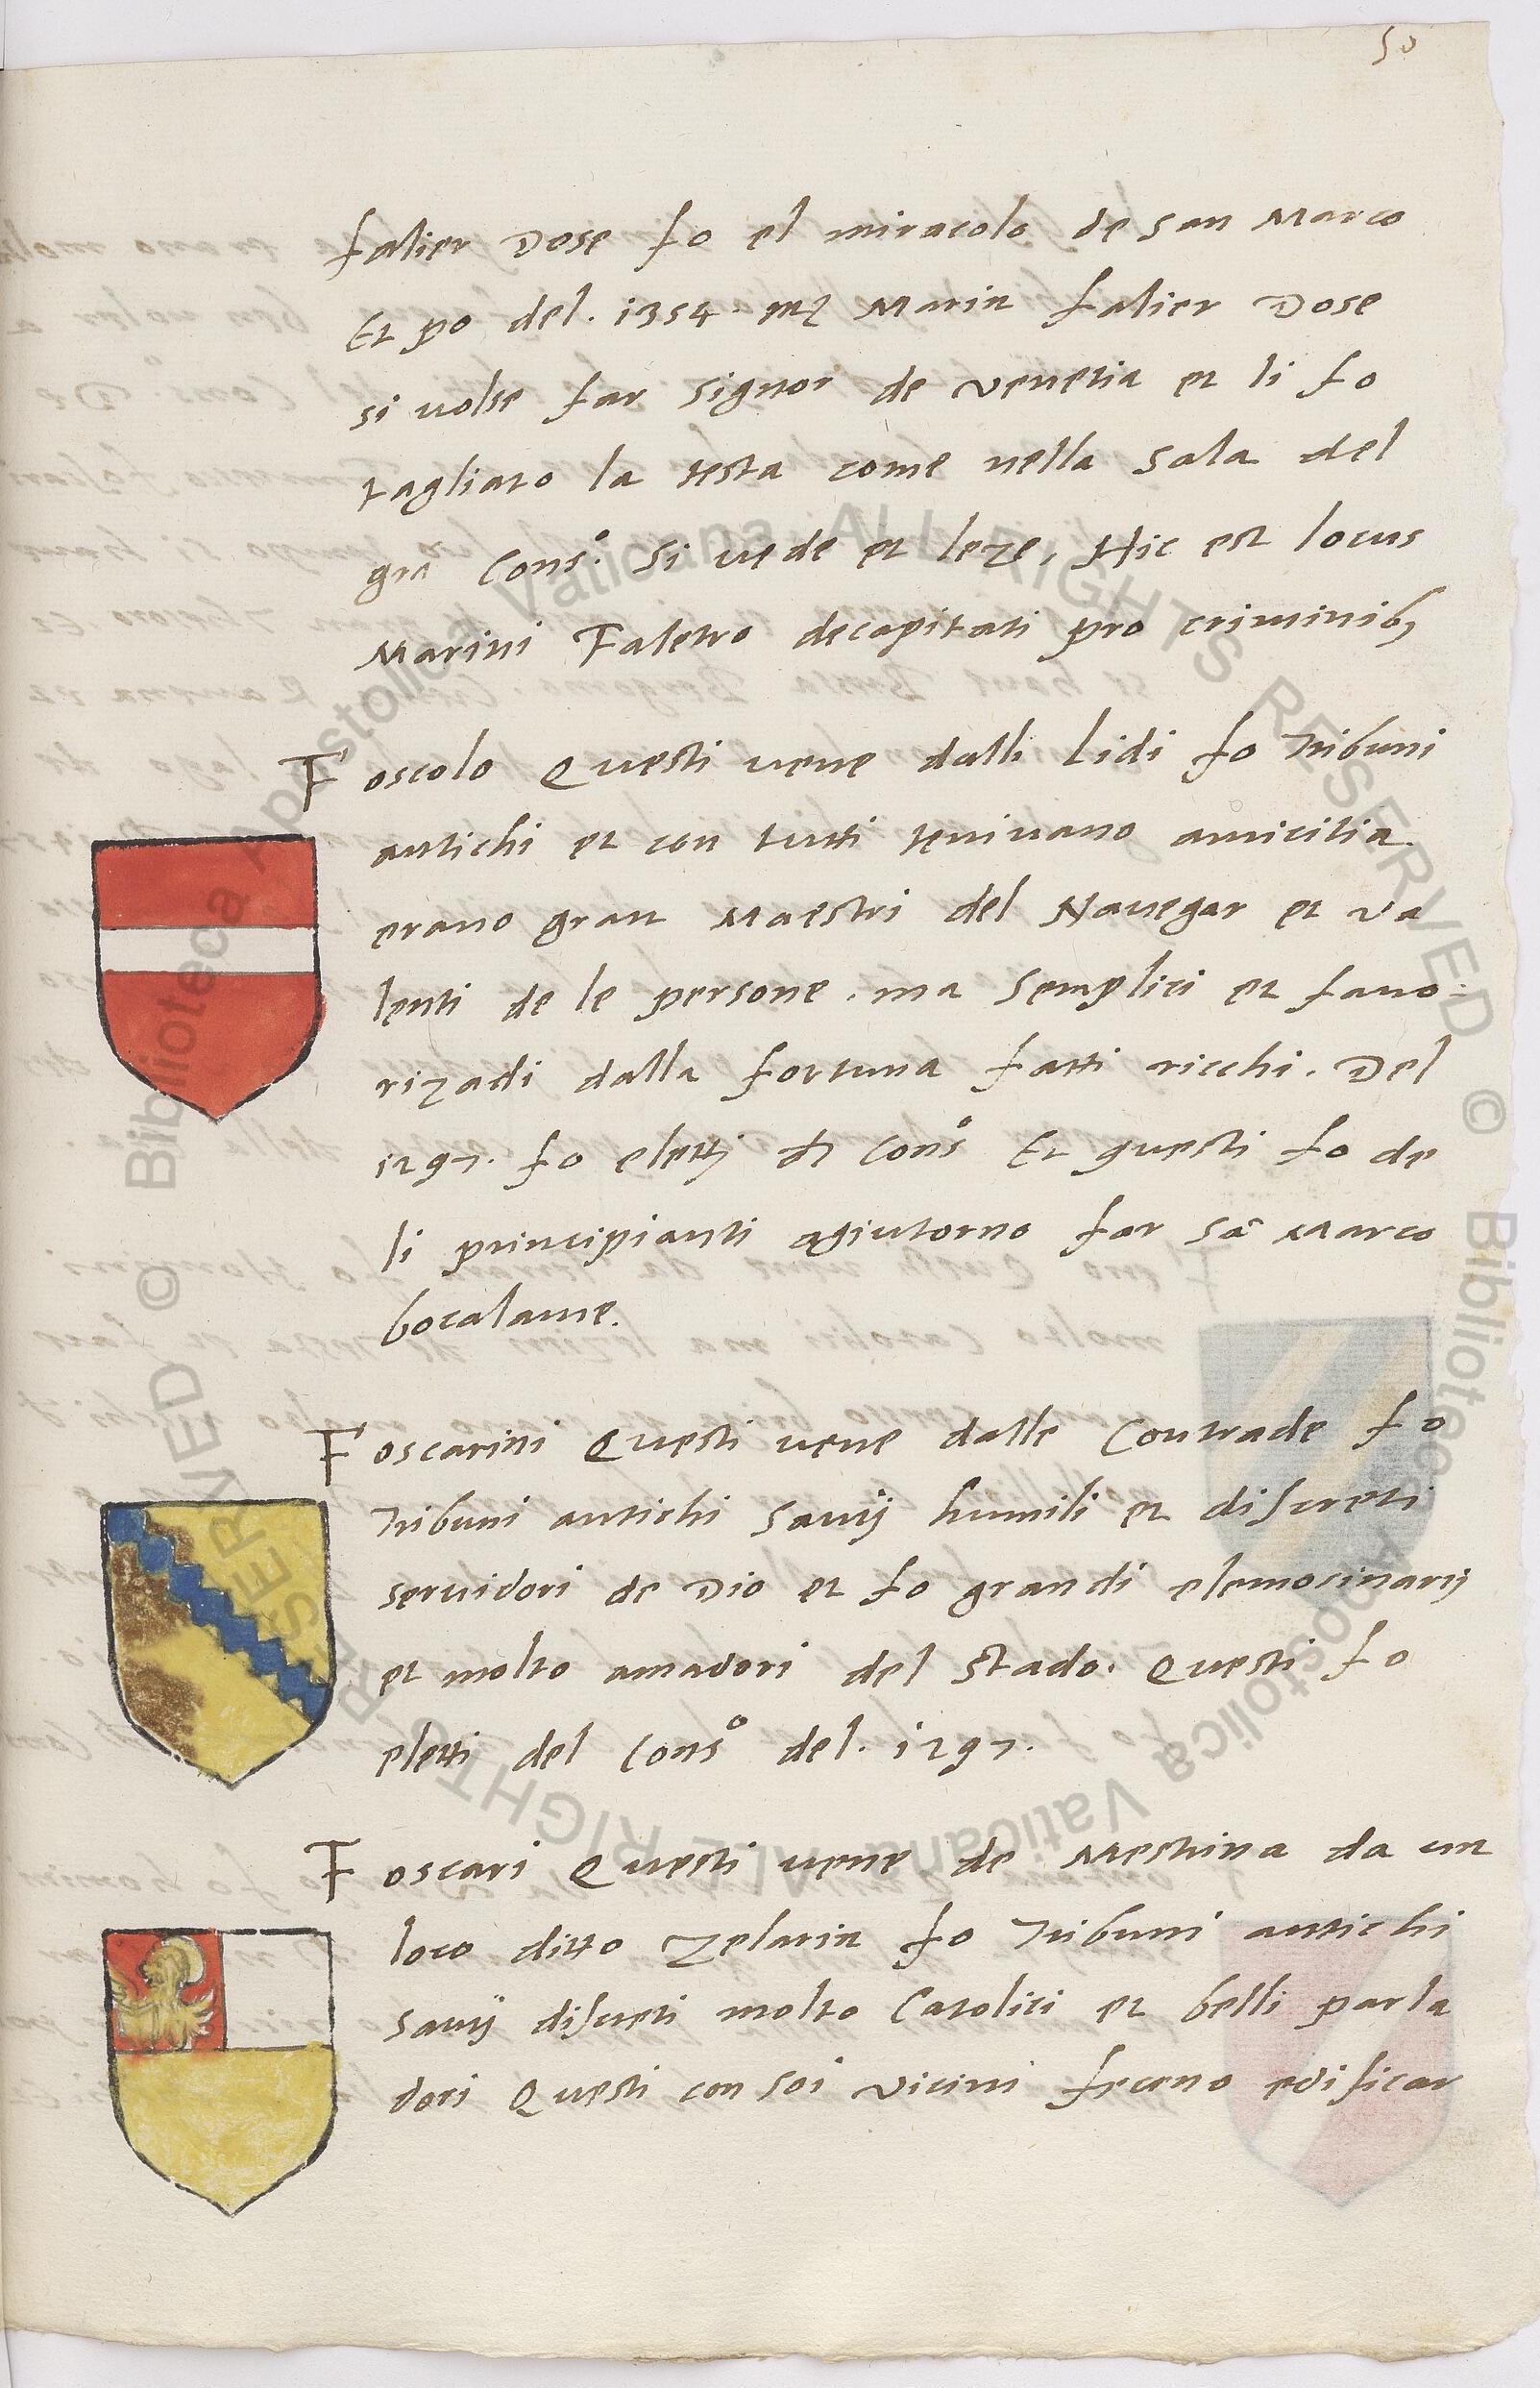 50
falier Dose fo el miracolo de san Marco
Et po del. 1354. mz Marin falier Dose
si volse far signor de venetia et li fo
tagliato la testa come nella sala del
grã Cons.º si vede et leze, Hic est locus
Marini Faletro decapitati pro criminibꝫ
Foscolo Questi vene dalli Lidi fo Tribuni
antichi et con tutti tenivano amicitia
erano gran Maestri del Nauegar et va
lenti de le persone. ma semplici et fauo-
rizadi dalla fortuna fatti ricchi. Del
1297. fo eletti Cons.º Et questi fo de
li principianti agiutorno far sã Marco
bocalame.
Foscarini Questi vene dalle Contrade fo
Tribuni antichi savij humili et discreti
seruidori de Dio et fo grandi elemosinarij
et molto amadori del Stado. Questi fo
eletti del Cons.º del. 1297.
Foscari Questi vene de Mestrina da un
loco ditto Zelarin fo Tribuni antichi
savij discreti molto Catolici et belli parla
dori Questi con soi vicini feceno edificar
© Biblioteca Apostolica Vaticana ALL RIGHTS RESERVED
© Biblioteca Apostolica Vaticana ALL RIGHTS RESERVED